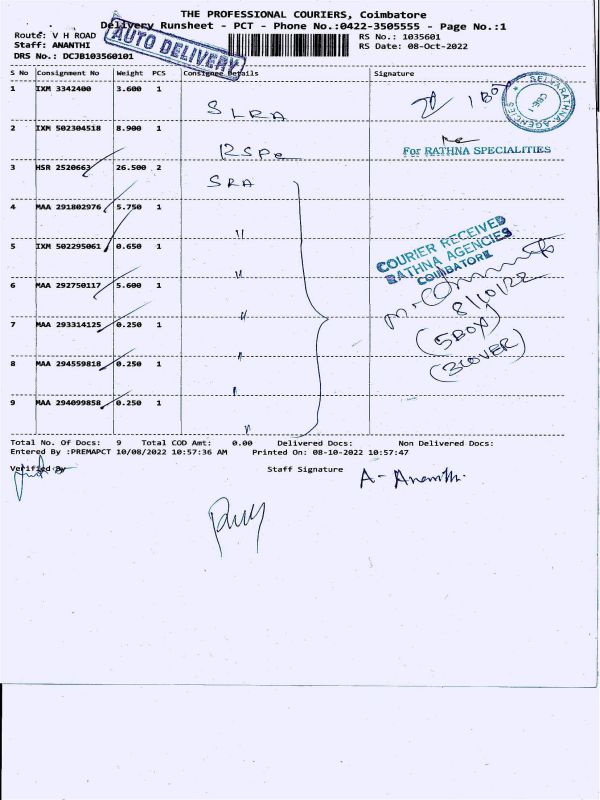 THE PROFESSIONAL COURIERS, Coimbatore
Delivery Runsheet - PCT - Phone No.:0422-3505555 - Page No.:1
Route: V H ROAD
RS No.: 1035601
Staff: ANANTHI
RS Date: 08-Oct-2022
DRS No.: DCJB103560101
AUTO DELIVERY
S No Consignment No Weight PCS Consignee Details Signature
1 IXM 3342400 3.600 1 SLRA 1 BOX
SELVARATHNA AGENCIES CBE-1
2 IXM 502304518 8.900 1 RSPe
For RATHNA SPECIALITIES
3 HSR 2520663 26.500 2 SRA
4 MAA 291802976 5.750 1 "
5 IXM 502295061 0.650 1 "
COURIER RECEIVED
RATHNA AGENCIES
COIMBATORE
6 MAA 292750117 5.600 1 "
8/10/22
7 MAA 293314125 0.250 1 "
(5BOX)
8 MAA 294559818 0.250 1 "
(3COVER)
9 MAA 294099858 0.250 1 "
Total No. Of Docs: 9 Total COD Amt: 0.00 Delivered Docs: Non Delivered Docs:
Entered By :PREMAPCT 10/08/2022 10:57:36 AM Printed On: 08-10-2022 10:57:47
Verified By Staff Signature A-Ananthi.